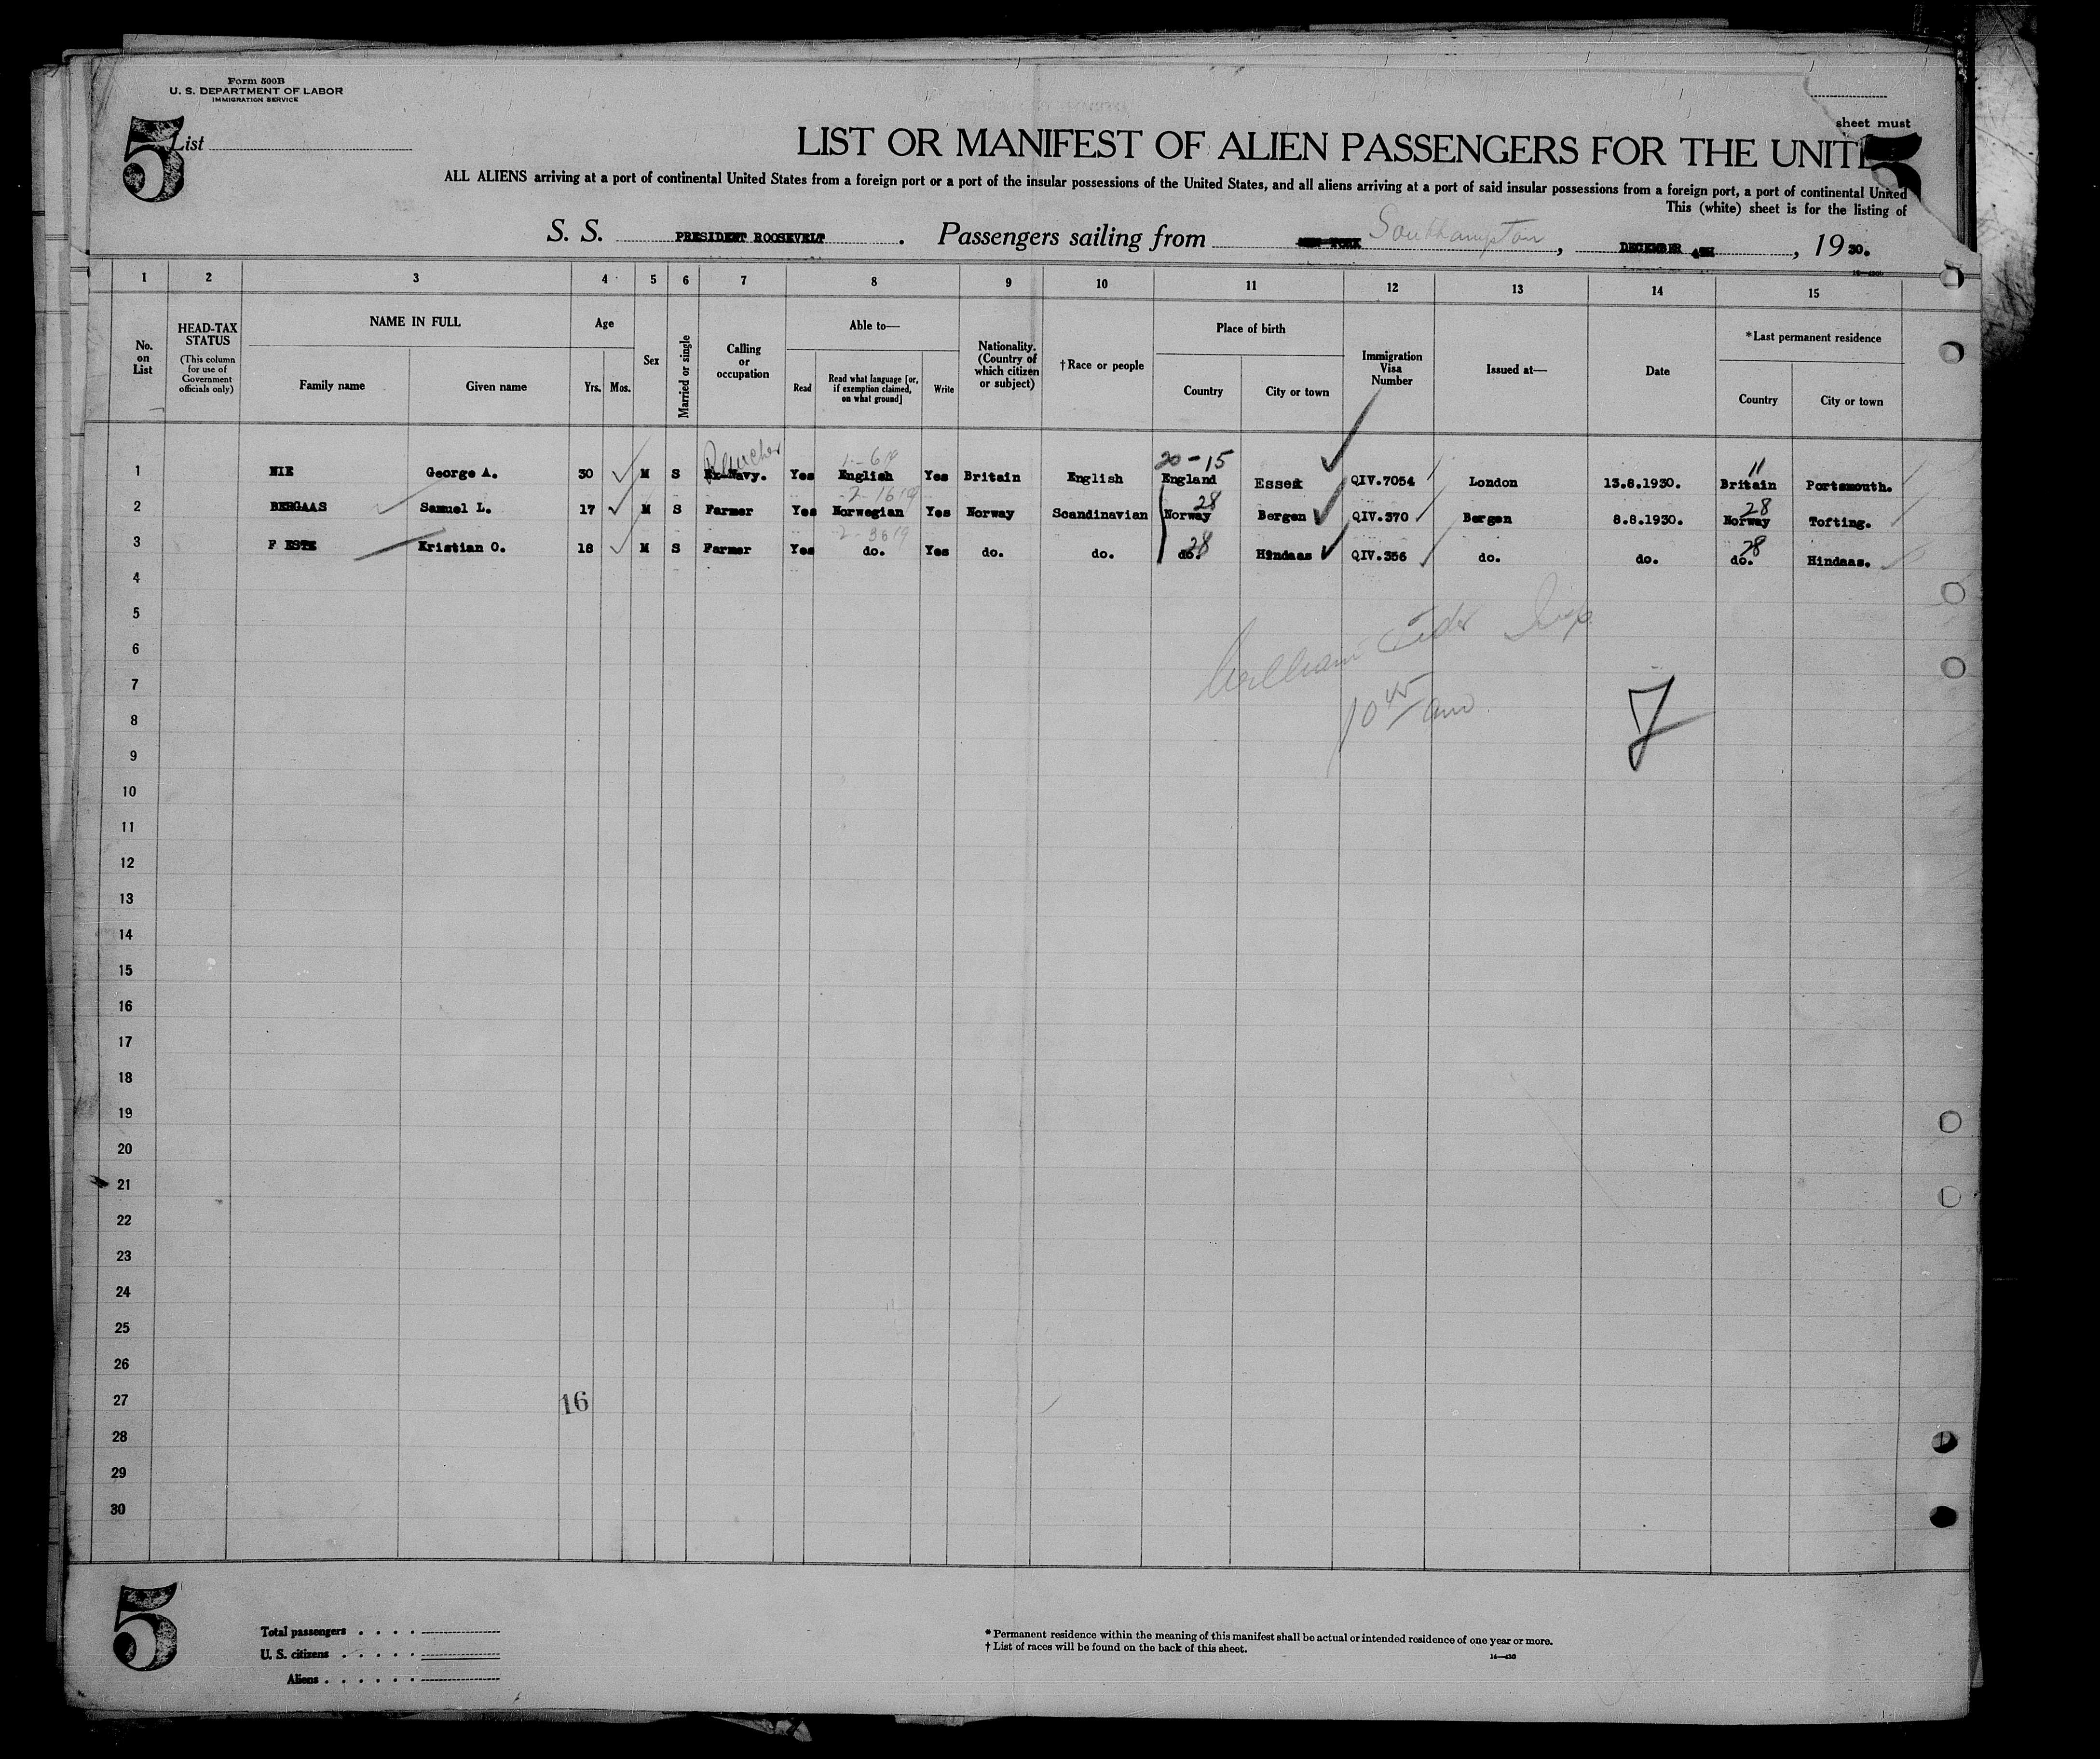 Form 500B
U. S. DEPARTMENT OF LABOR
IMMIGRATION SERVICE
5
List
sheet must
LIST OR MANIFEST OF ALIEN PASSENGERS FOR THE UNITE
ALL ALIENS arriving at a port of continental United States from a foreign port or a port of the insular possessions of the United States, and all aliens arriving at a port of said insular possessions from a foreign port, a port of continental United
This (white) sheet is for the listing of
S. S. PRESIDENT ROOSEVELT. Passengers sailing from NEW YORK Southampton, DECEMBER 4TH, 19 30.
1 2 3 4 5 6 7 8 9 10 11 12 13 14 15
No. on List
HEAD-TAX STATUS
(This column for use of Government officials only)
NAME IN FULL
Family name
Given name
Age
Yrs.
Mos.
Sex
Married or single
Calling or occupation
Able to—
Read
Read what language [or, if exemption claimed, on what ground]
Write
Nationality. (Country of which citizen or subject)
†Race or people
Place of birth
Country
City or town
Immigration Visa Number
Issued at—
Date
*Last permanent residence
Country
City or town
20-15
11
1 NIE George A. 30 M S Ex-Navy. Yes English Yes Britain English England Essex QIV.7054 London 13.8.1930. Britain Portsmouth.
28
28
2 BERGAAS Samuel L. 17 M S Farmer Yes Norwegian Yes Norway Scandinavian Norway Bergen QIV.370 Bergen 8.8.1930. Norway Tofting.
28
28
3 F ESTE Kristian O. 18 M S Farmer Yes do. Yes do. do. do. Hindaas QIV.356 do. do. do. Hindaas.
4
5
6
William
7
10 45 am
8
9
10
11
12
13
14
15
16
17
18
19
20
21
22
23
24
25
26
27
16
28
29
30
5
Total passengers
U. S. citizens
Aliens
* Permanent residence within the meaning of this manifest shall be actual or intended residence of one year or more.
† List of races will be found on the back of this sheet.
14—430